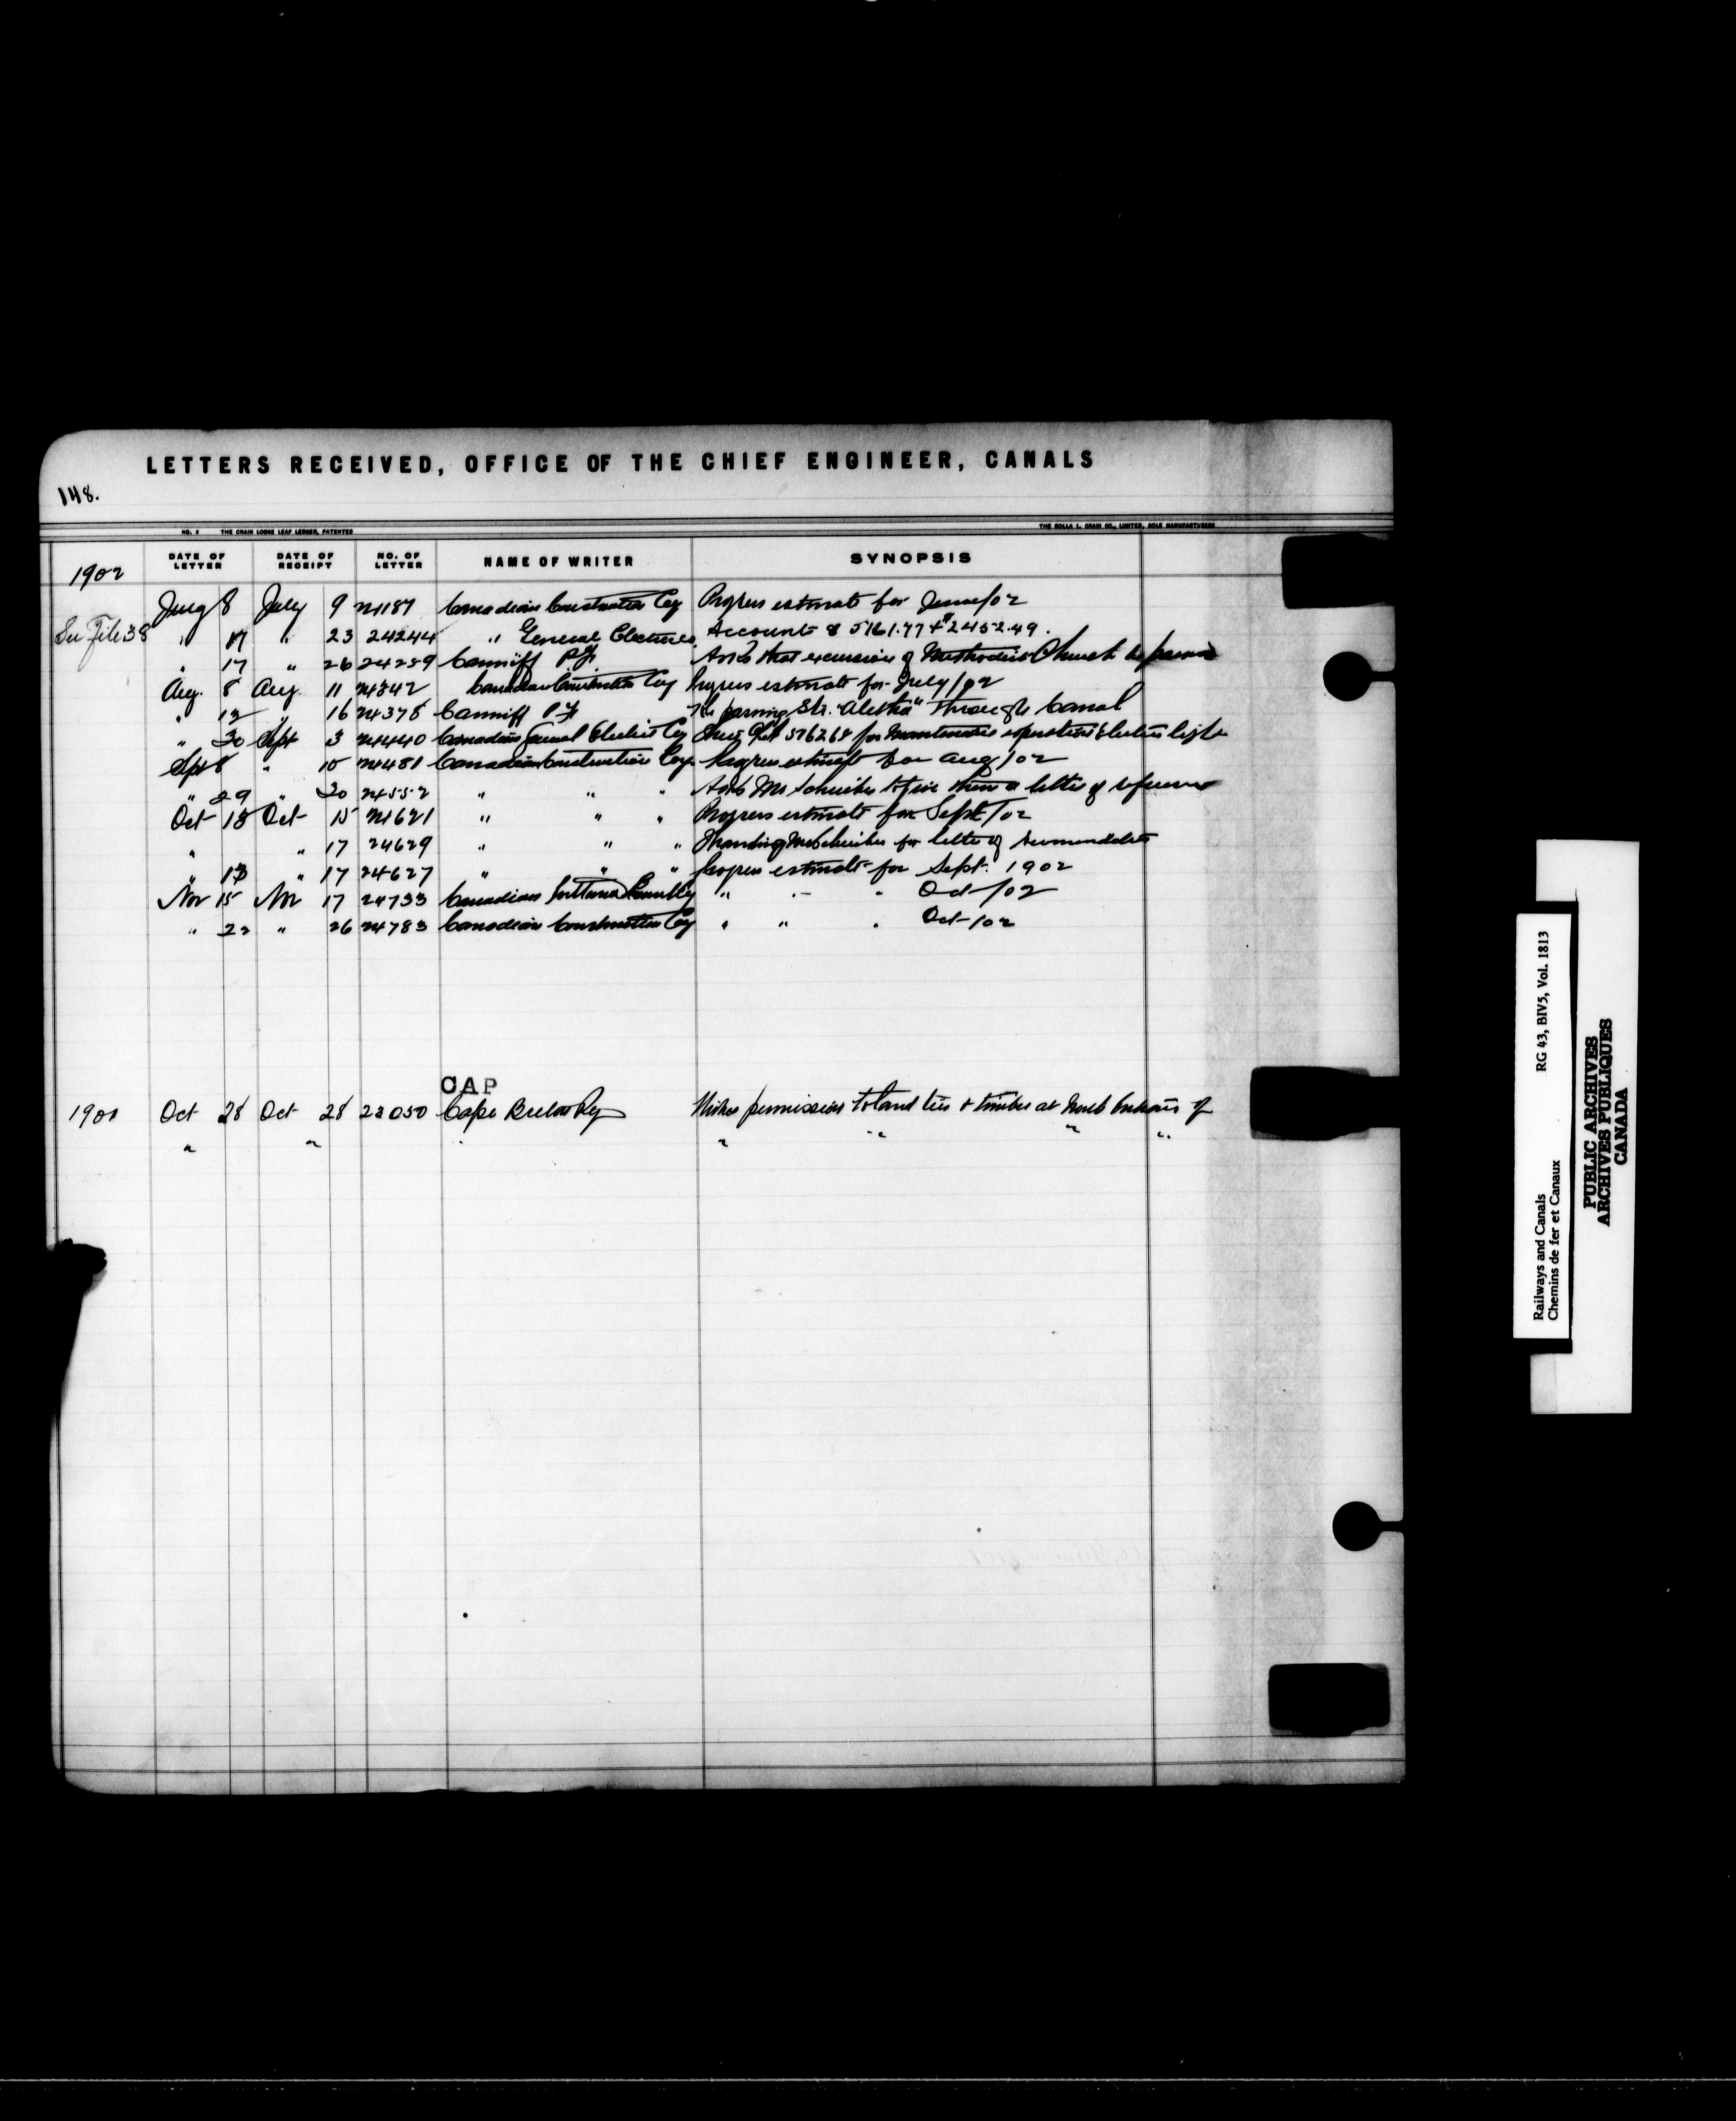 LETTERS RECEIVED, OFFICE OF THE CHIEF ENGINEER, CANALS
148.
NO. 2 THE CRAIN LOOSE LEAF LEDGER, PATENTED THE ROLLA L. CRAIN CO., LIMITED, SOLE MANUFACTURERS
1902 DATE OF LETTER DATE OF RECEIPT NO. OF LETTER NAME OF WRITER SYNOPSIS
8 July 9 24187 Canadian Construction Coy Progress estimate for June/02
See File 38 " 17 " 23 24244 " General Electric Co. Accounts $5161.77 + $2452.49.
" 17 " 26 24259 Canniff P.F. Asks that excursion of Methodist Church be
Aug. 8 Aug 11 24342 Canadian Construction Coy Progress estimate for July/02
" 12 " 16 24378 Canniff P.F. Re passing Str. "Aletha" through Canal
" 30 Sept 3 24440 Canadian General Electric Coy for Maintenance operation Electric light
Sept 8 " 10 24481 Canadian Construction Coy. Progress estimate for Aug/02
" 29 " 30 24552 " " " Asks Mr Schreiber to give them a letter of reference
Oct 13 Oct 15 24621 " " " Progress estimate for Sept/02
" " 17 24629 " " " Thanking Mr Schreiber for letter of recommendation
" 13 " 17 24627 " " " Progress estimate for Sept. 1902
Nov 15 Nov 17 24733 Canadian " " " Oct/02
" 22 " 26 24783 Canadian Construction Coy " " " Oct/02
CAP
1901 Oct 28 Oct 28 23050 Cape Breton Ry Wishes permission to land ties & timber at North Entrance of
" " " " " " "
RG 43, BIV5, Vol. 1813
Railways and Canals
Chemins de fer et Canaux
PUBLIC ARCHIVES
ARCHIVES PUBLIQUES
CANADA